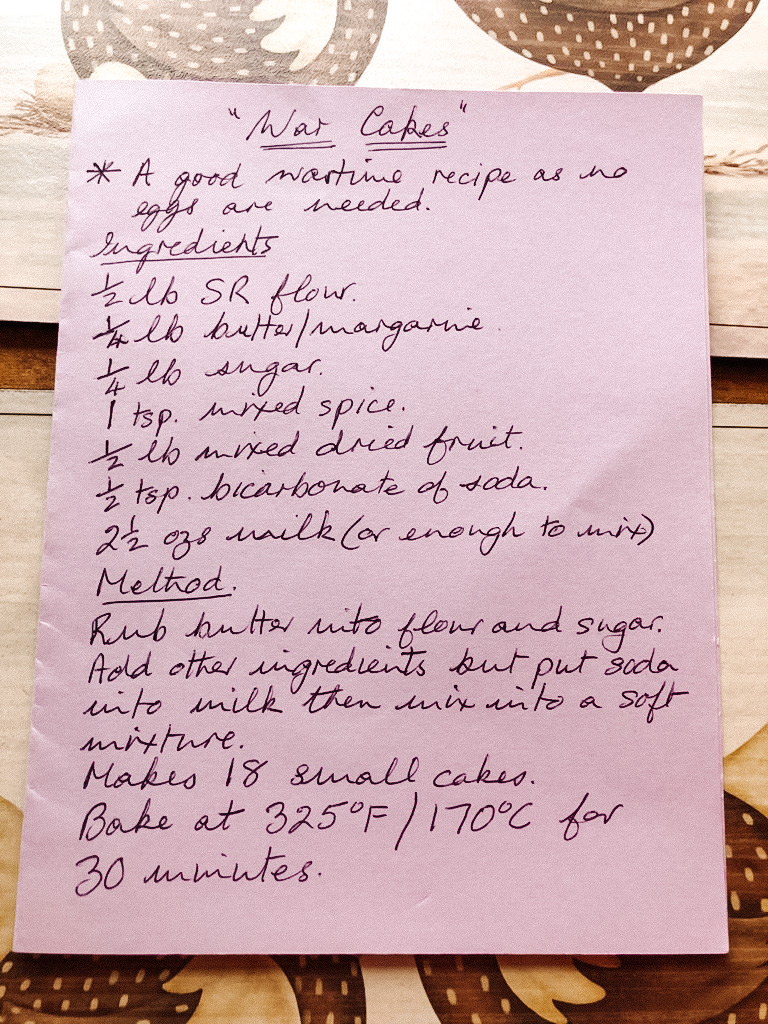 "War Cakes"
* A good wartime recipe as no
eggs are needed.
Ingredients
½ lb SR flour.
¼ lb butter/margarine.
¼ lb sugar.
1 tsp. mixed spice.
½ lb mixed dried fruit.
½ tsp. bicarbonate of soda.
2½ ozs milk (or enough to mix)
Method.
Rub butter into flour and sugar.
Add other ingredients but put soda
into milk then mix into a soft
mixture.
Makes 18 small cakes.
Bake at 325°F/170°C for
30 minutes.